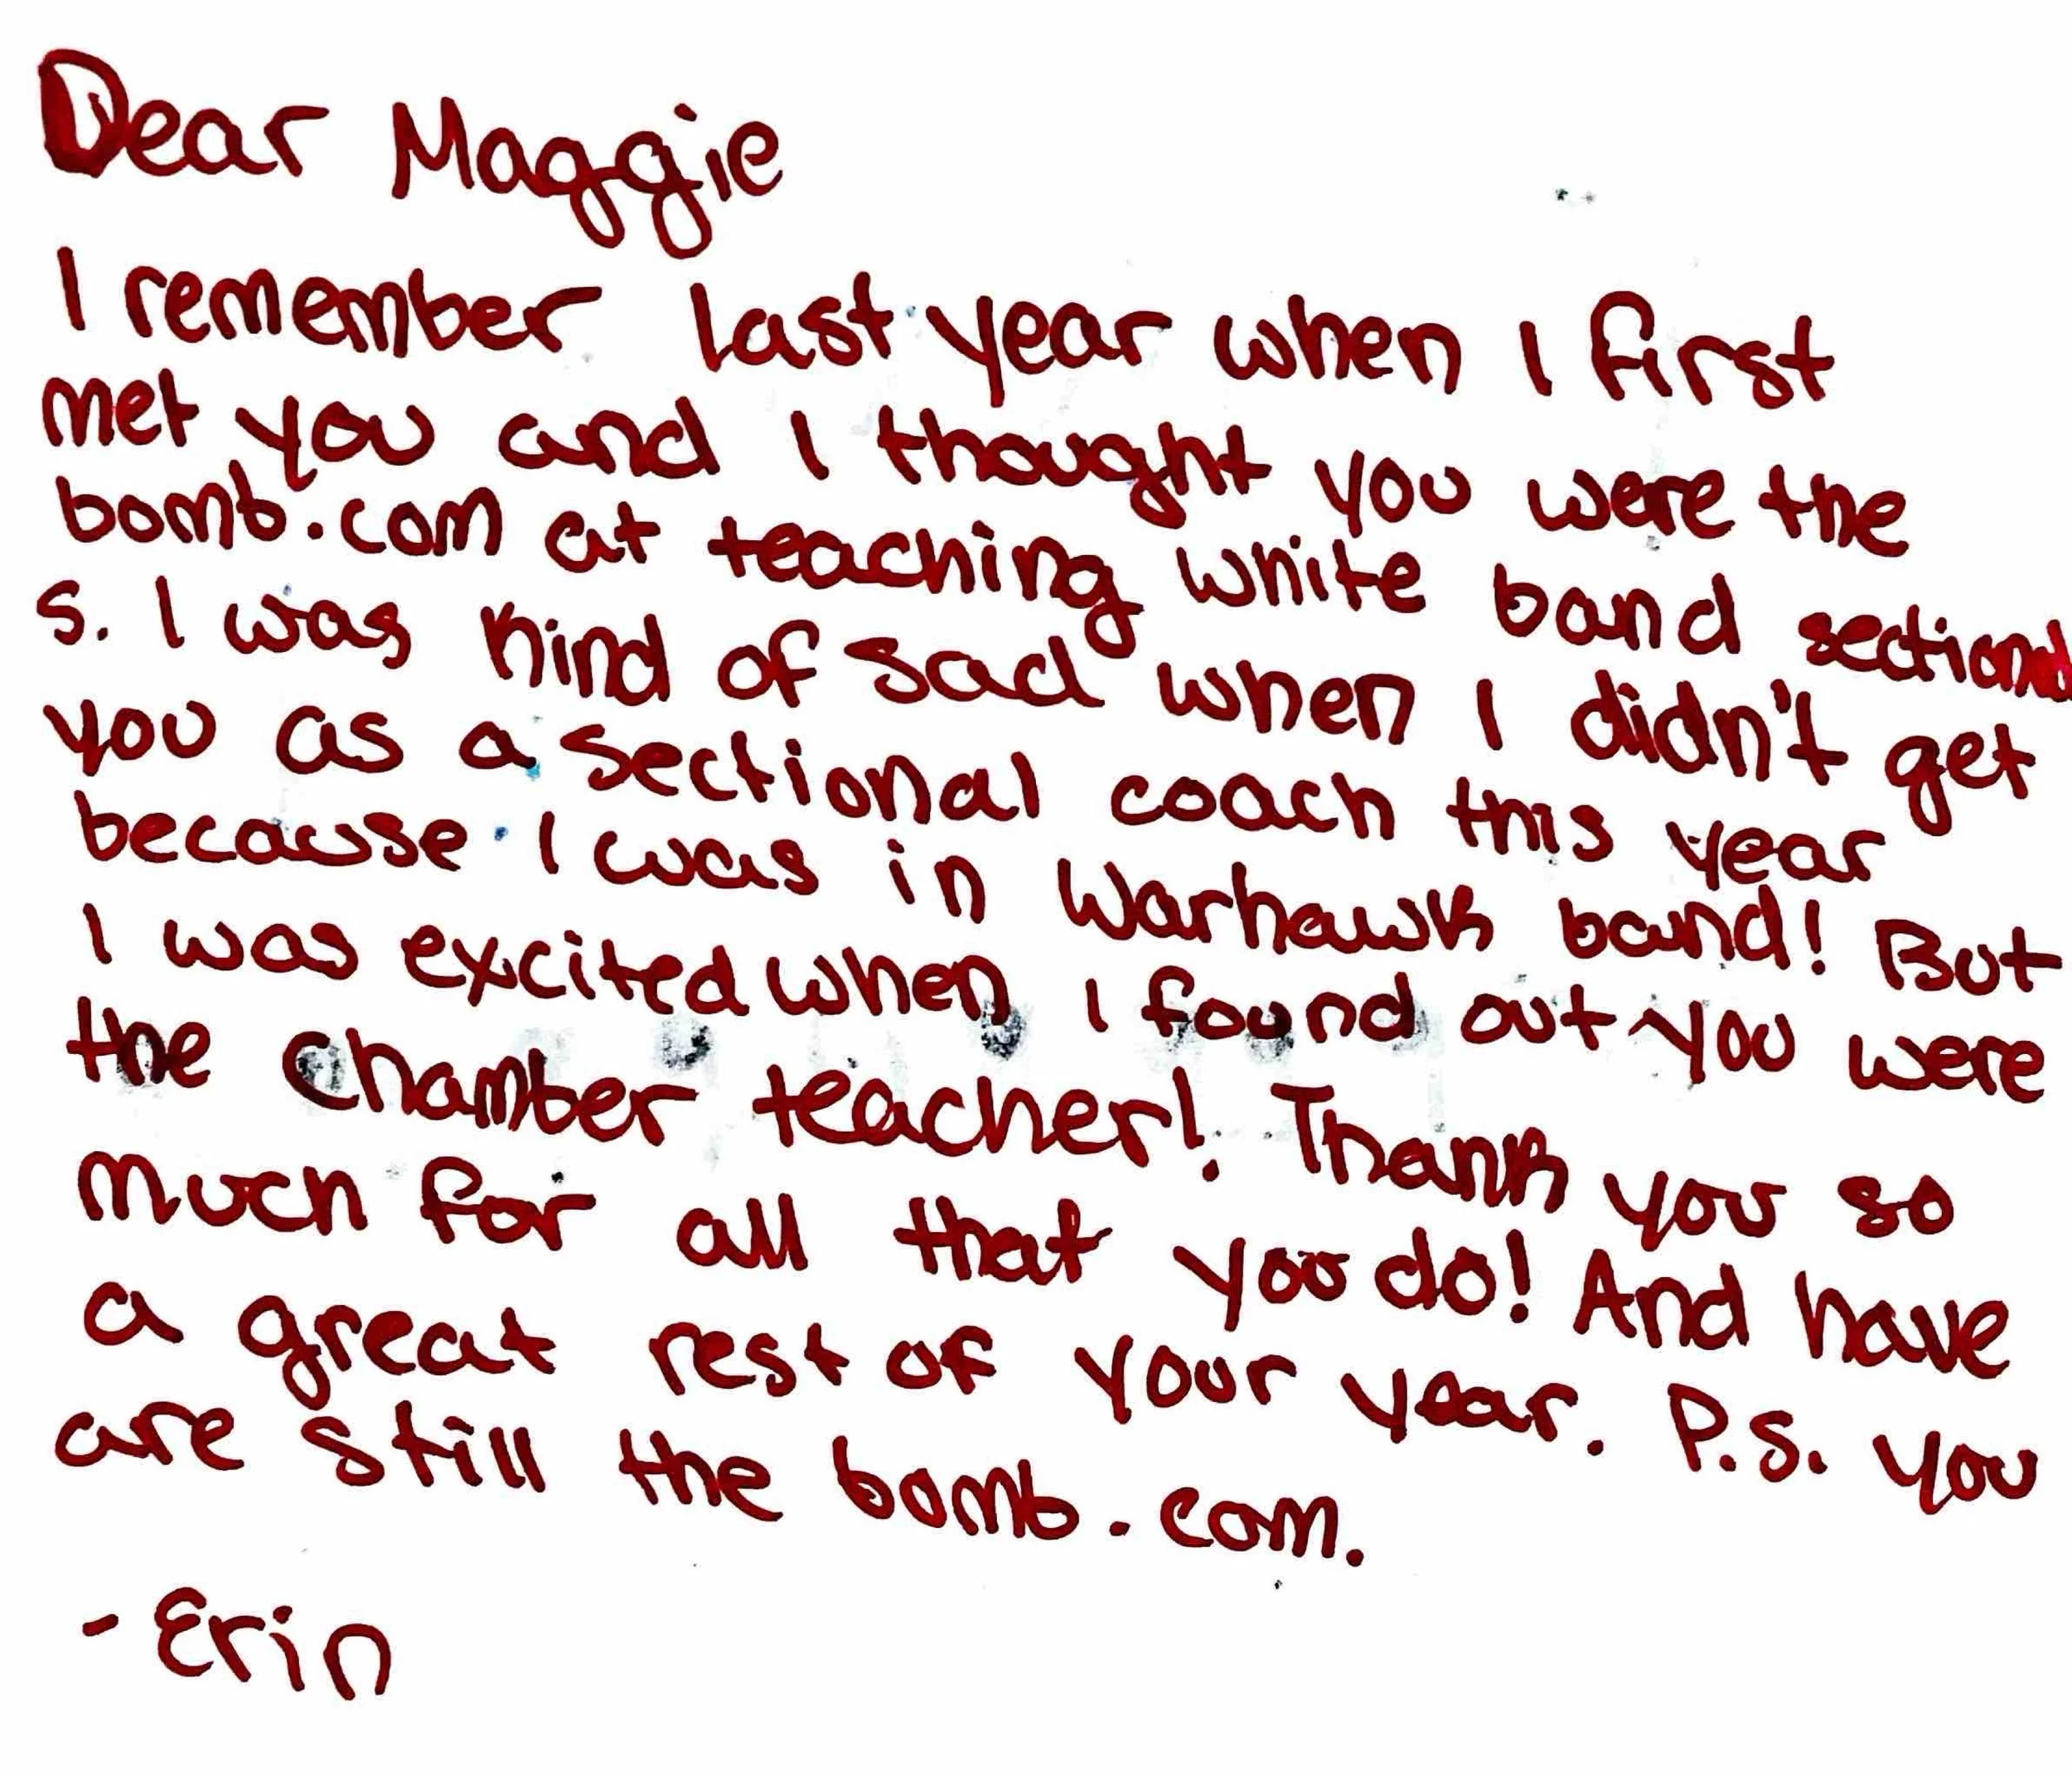 Dear Maggie
I remember last year when I first
met you and I thought you were the
bomb.com at teaching white band sectional
s. I was kind of sad when I didn't get
you as a sectional coach this year
because I was in Warhawk band! But
I was excited when I found out you were
the chamber teacher! Thank you so
much for all that you do! And have
a great rest of your year. P.S. you
are still the bomb.com.
- Erin